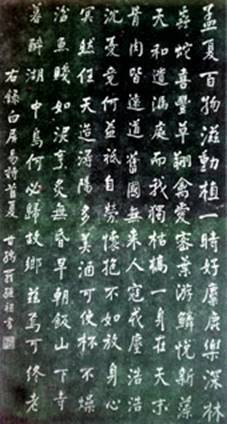 孟夏百物滋動植一時好麋鹿樂深林
蟲蛇喜豐草翔禽愛密葉游鱗悅新藻
天和遺漏處而我獨枯槁一身在天末
骨肉皆遠道舊國無來人寇戎塵浩浩
沉憂竟何益祇自勞懷抱不如放身心
冥然任天造潯陽多美酒可使杯不燥
湓魚賤如泥烹炙無昏早朝飯山下寺
暮醉湖中島何必歸故鄉茲焉可終老
右錄白居易詩首夏 甘孺羅繼祖書